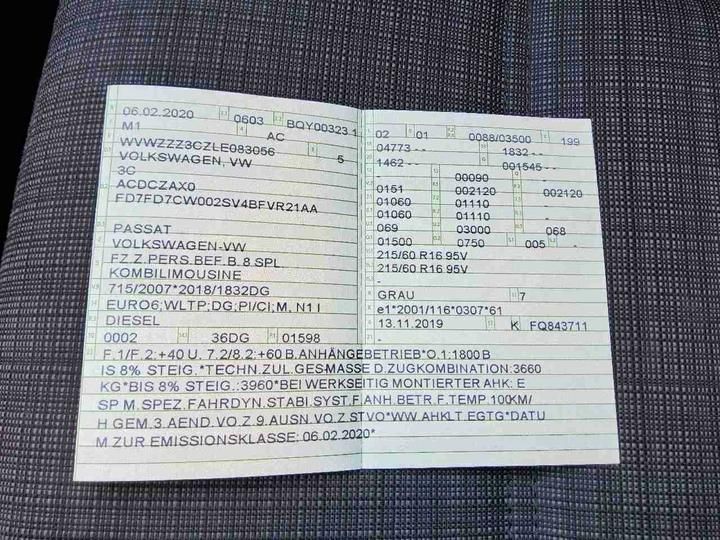 06.02.2020 0603 BQY00323 1
M1 AC
WVWZZZ3CZLE083056 5
VOLKSWAGEN, VW
3C
ACDCZAX0
FD7FD7CW002SV4BFVR21AA
PASSAT
VOLKSWAGEN-VW
FZ.Z.PERS.BEF.B. 8 SPL
KOMBILIMOUSINE
715/2007*2018/1832DG
EURO6;WLTP;DG;PI/CI; M, N1 I
DIESEL
0002 36DG 01598
02 01 0088/03500 199
04773 - - 1832 - -
1462 - - 001545 - -
00090
0151 002120 002120
01060 01110 -
01060 01110 -
069 03000 068
01500 0750 005 -
215/60 R16 95V
215/60 R16 95V
-
GRAU 7
e1*2001/116*0307*61
13.11.2019 K FQ843711
-
F.1/F.2:+40 U. 7.2/8.2:+60 B.ANHÄNGEBETRIEB*O.1:1800 B
IS 8% STEIG.*TECHN.ZUL.GES-MASSE D.ZUGKOMBINATION:3660
KG*BIS 8% STEIG.:3960*BEI WERKSEITIG MONTIERTER AHK: E
SP M.SPEZ.FAHRDYN.STABI.SYST.F.ANH.BETR.F.TEMP.100KM/
H GEM.3.AEND.VO.Z.9.AUSN.VO.Z.STVO*WW.AHKLT.EGTG*DATU
M ZUR EMISSIONSKLASSE: 06.02.2020*